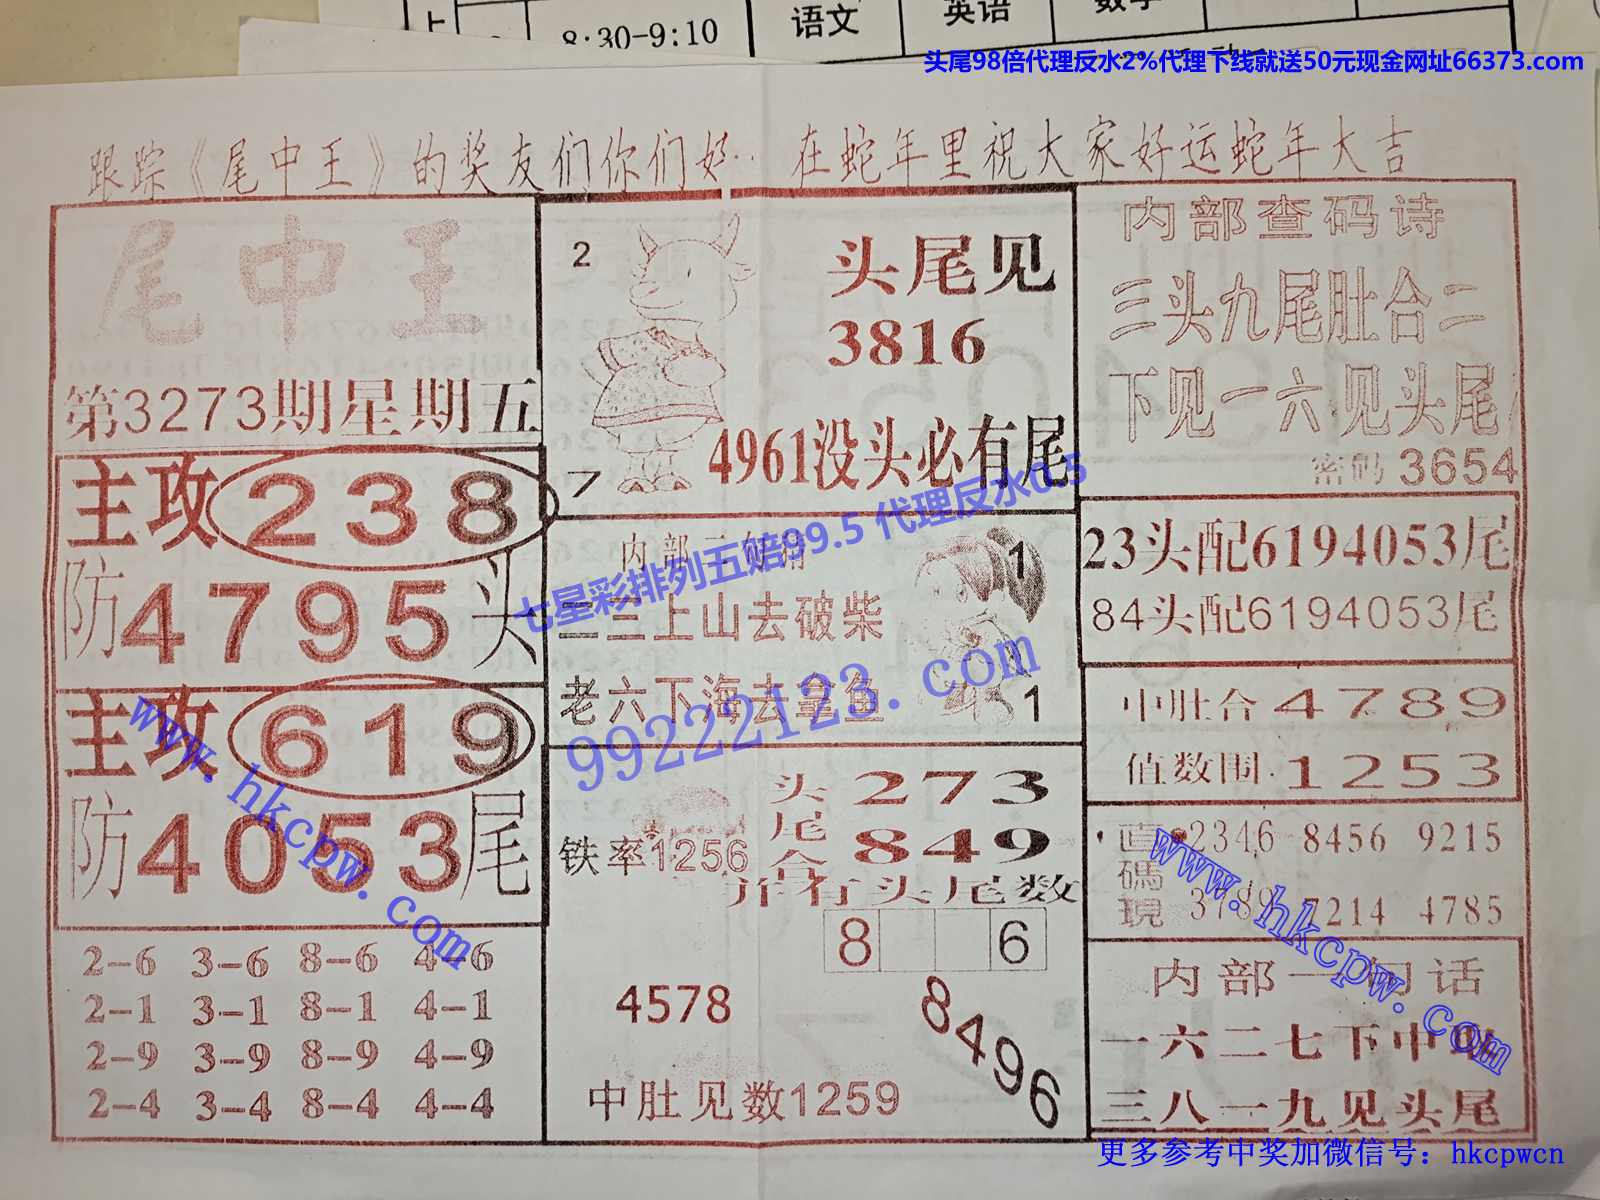 语文 英语 数学
8:30-9:10
头尾98倍代理反水2%代理下线就送50元现金网址66373.com
跟踪《尾中王》的奖友们你们好.. 在蛇年里祝大家好运蛇年大吉
尾中王
第3273期星期五
主攻238
防4795头
主攻619
防4053尾
2-6 3-6 8-6 4-6
2-1 3-1 8-1 4-1
2-9 3-9 8-9 4-9
2-4 3-4 8-4 4-4
2
头尾见
3816
4961没头必有尾
7
内部二句
1
二三上山去破柴
老六下海去拿鱼
1
头 273
尾 849
合
铁率1256
并有头尾数
8 6
4578
8496
中肚见数1259
内部查码诗
三头九尾肚合二
下见一六见头尾
密码3654
23头配6194053尾
84头配6194053尾
中肚合4789
值数围.1253
直碼現
2346 8456 9215
3789 7214 4785
内部一句话
一六二七下中
三八一九见头尾
七星彩排列五赔99.5 代理反水0.5
99222123.com
www.hkcpw.com
www.hkcpw.com
更多参考中奖加微信号：hkcpwcn